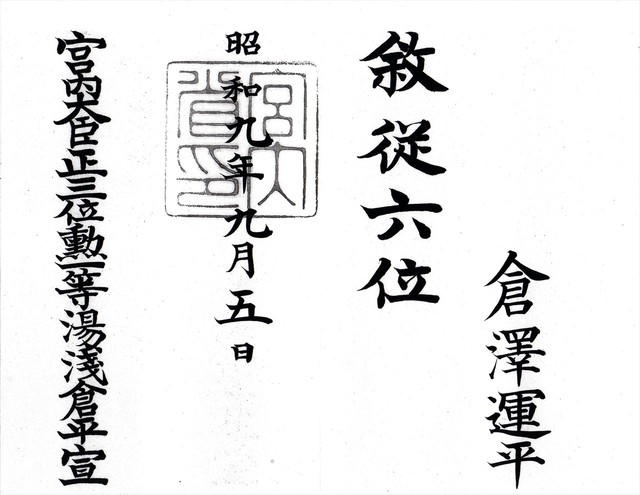 倉澤運平
敘從六位
昭和九年九月五日
宮内省印
宮内大臣正三位勲一等湯淺倉平宣